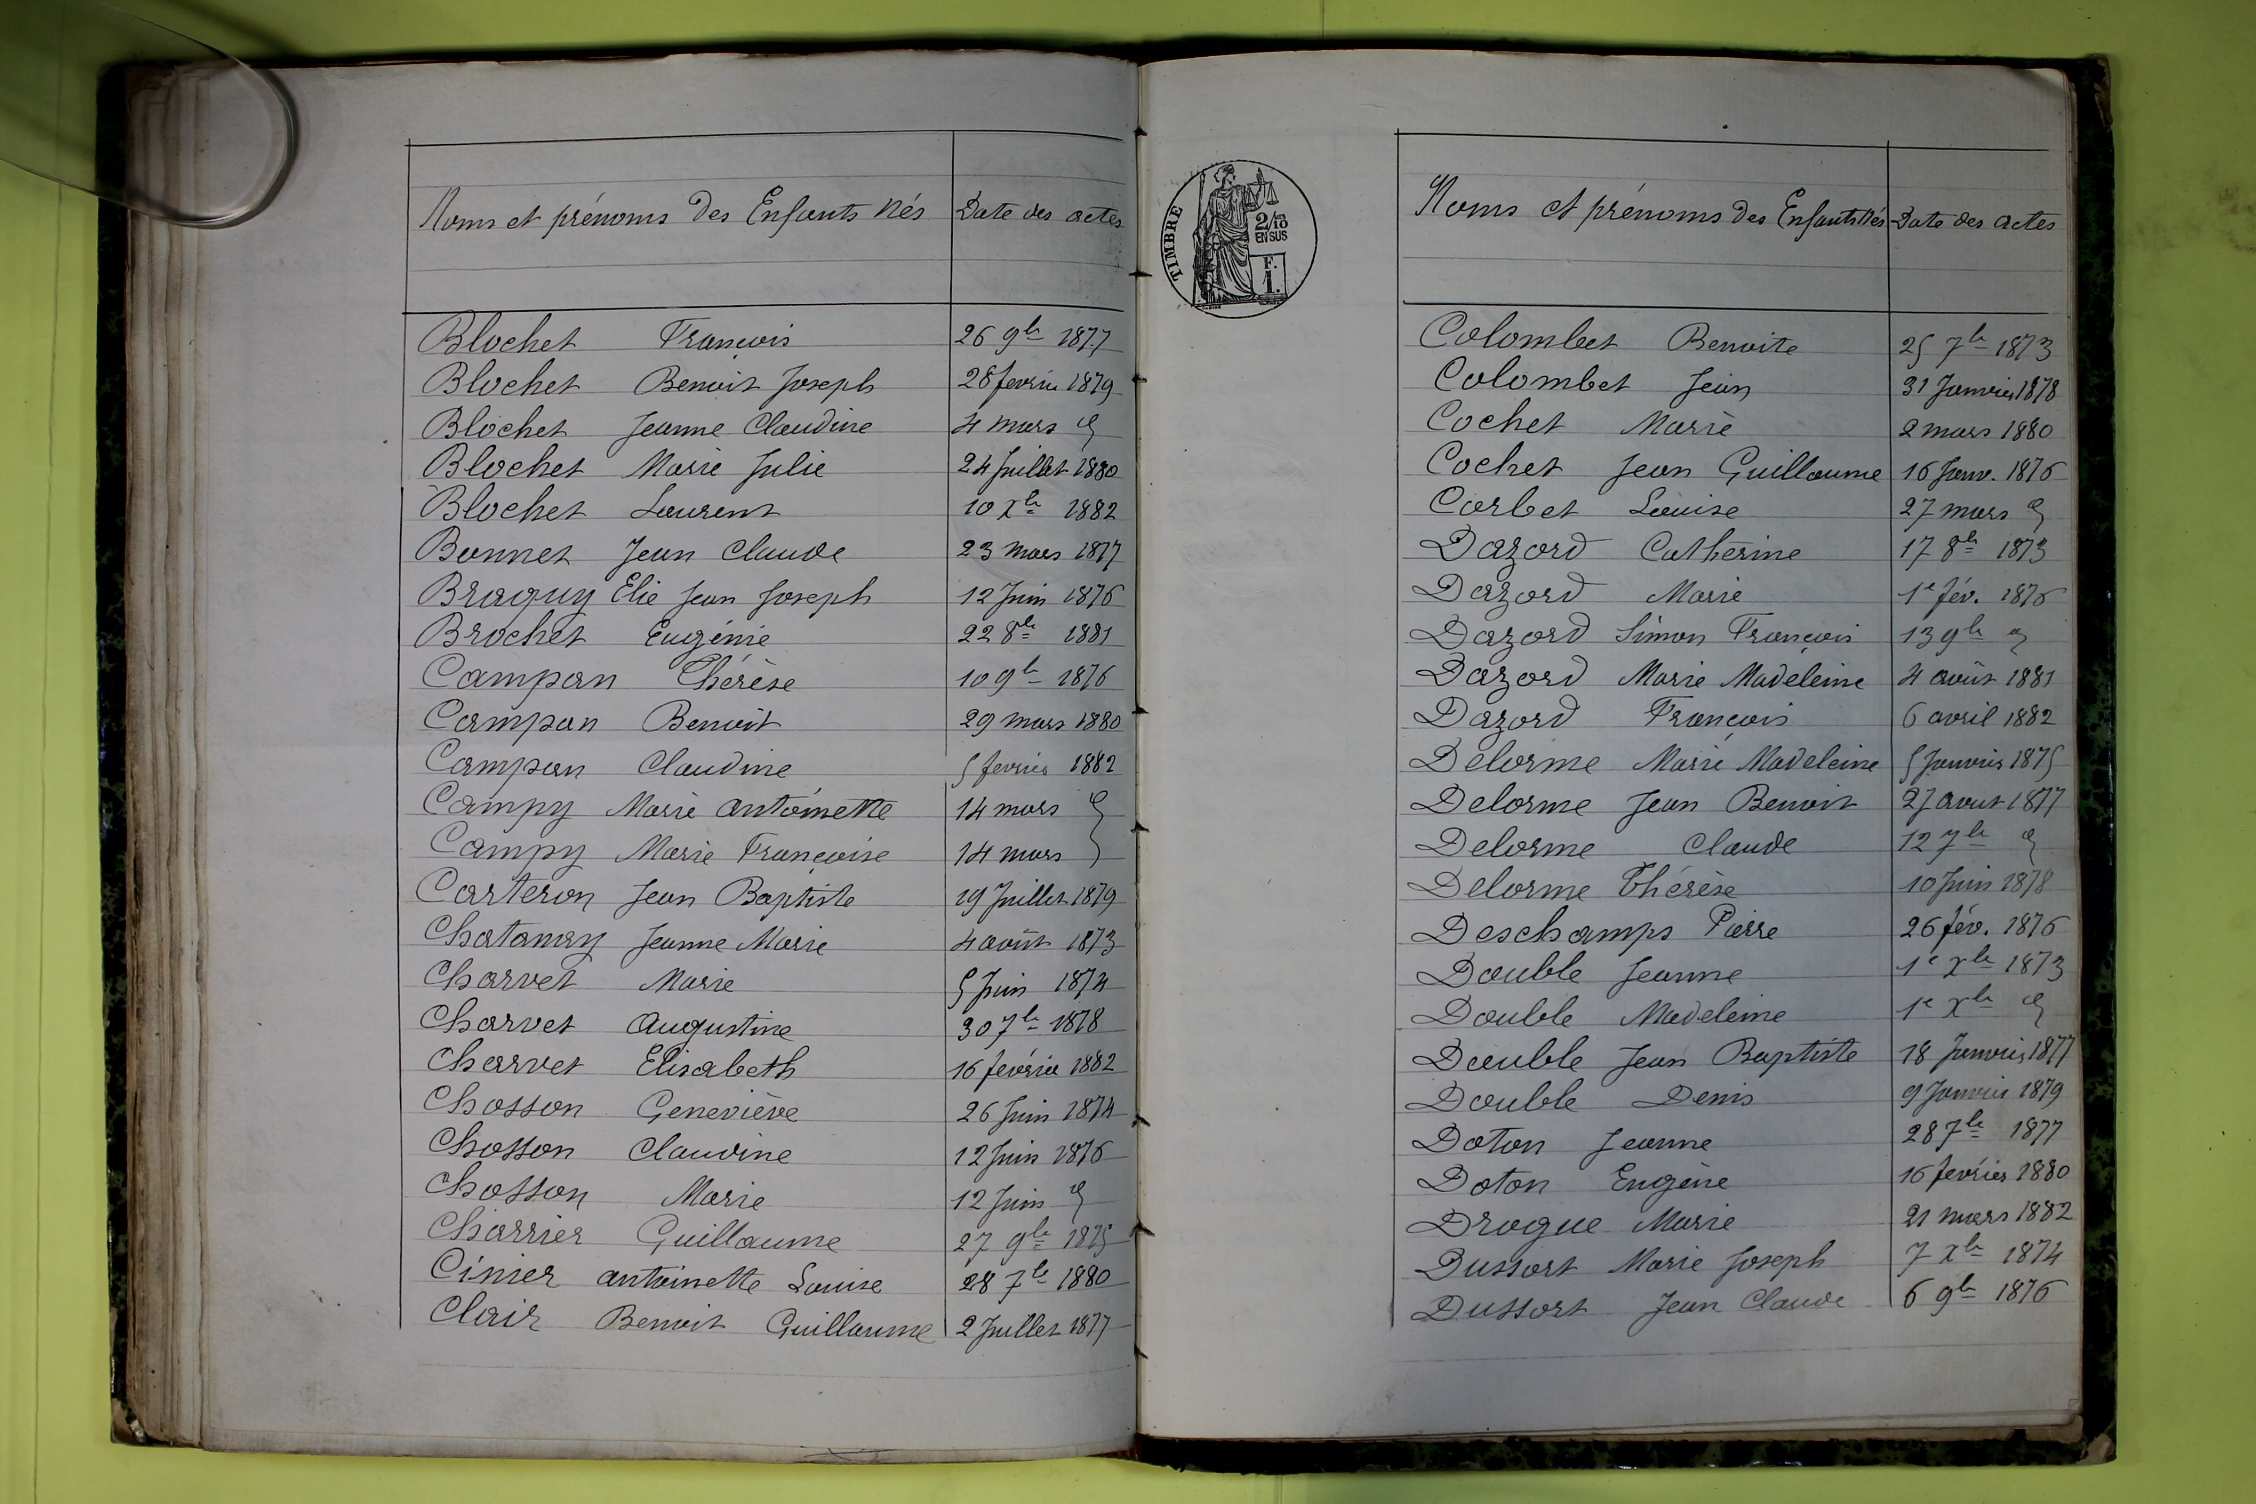 Noms et prénoms des Enfants Nés Date des actes
Blochet François 26 9bre 1877
Blochet Benoit Joseph 28 fevrier 1879
Blochet Jeanne Claudine 4 mars "
Blochet Marie Julie 24 Juillet 1880
Blochet Laurent 10 Xbre 1882
Bonnet Jean Claude 23 mars 1877
Braguy Elie Jean Joseph 12 Juin 1876
Brochet Eugénie 22 8bre 1881
Campan Thérèse 10 9bre 1876
Campan Benoit 29 mars 1880
Campan Claudine 5 fevrier 1882
Campy Marie antoinette 14 mars "
Campy Marie Françoise 14 mars "
Carteron Jean Baptiste 19 Juillet 1879
Chatanay Jeanne Marie 4 août 1873
Charvet Marie 5 Juin 1874
Charvet Augustine 30 7bre 1878
Charvet Elisabeth 16 février 1882
Chosson Geneviève 26 Juin 1874
Chosson Claudine 12 Juin 1876
Chosson Marie 12 Juin "
Charrier Guillaume 27 9bre 1875
Cinier antoinette Louise 28 7bre 1880
Clair Benoit Guillaume 2 Juillet 1877
TIMBRE
2/10
EN SUS
F.
1.
Noms et prénoms des Enfants Nés Date des actes
Colombet Benoite 25 7bre 1873
Colombet Jean 31 Janvier 1878
Cochet Marie 2 mars 1880
Cochet Jean Guillaume 16 Janv. 1876
Corbet Louise 27 mars "
Dazord Catherine 17 8bre 1873
Dazord Marie 1e fév. 1876
Dazord Simon François 13 9bre "
Dazord Marie Madeleine 4 août 1881
Dazord François 6 avril 1882
Delorme Marie Madeleine 5 Janvier 1875
Delorme Jean Benoit 27 aout 1877
Delorme Claude 12 7bre "
Delorme Thérèse 10 Juin 1878
Deschamps Pierre 26 fév. 1876
Double Jeanne 1e Xbre 1873
Double Madeleine 1e Xbre "
Double Jean Baptiste 18 Janvier 1877
Double Denis 9 Janvier 1879
Doton Jeanne 28 7bre 1877
Doton Eugène 16 février 1880
Drogue Marie 21 mars 1882
Dussort Marie Joseph 7 Xbre 1874
Dussort Jean Claude 6 9bre 1876